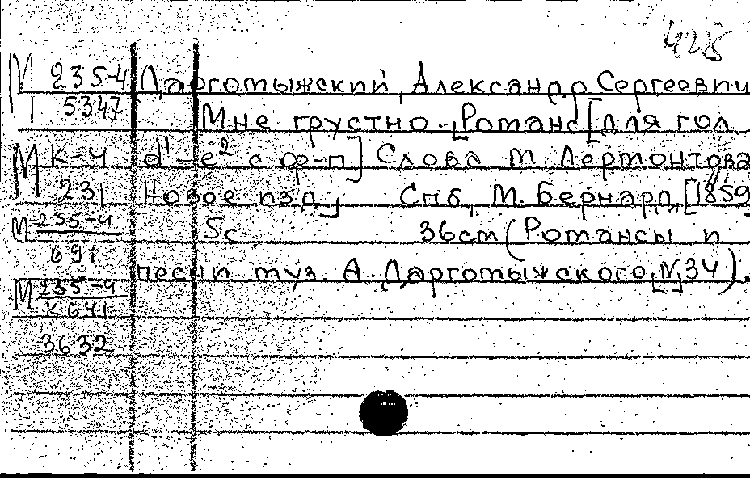 428
М 235-4 Даргомыжский, Александр Сергеевич
5347 Мне грустно. [Романс] [для гол.
М К-4 d¹-e² с ф-п] Слова М. Лермонтова
231 Новое изд. Спб, М. Бернард, [1859
М 235-4 5с 36см (Романсы и
691 песни муз. А. Даргомыжского, № 34).
М 235-4
К 641
3632